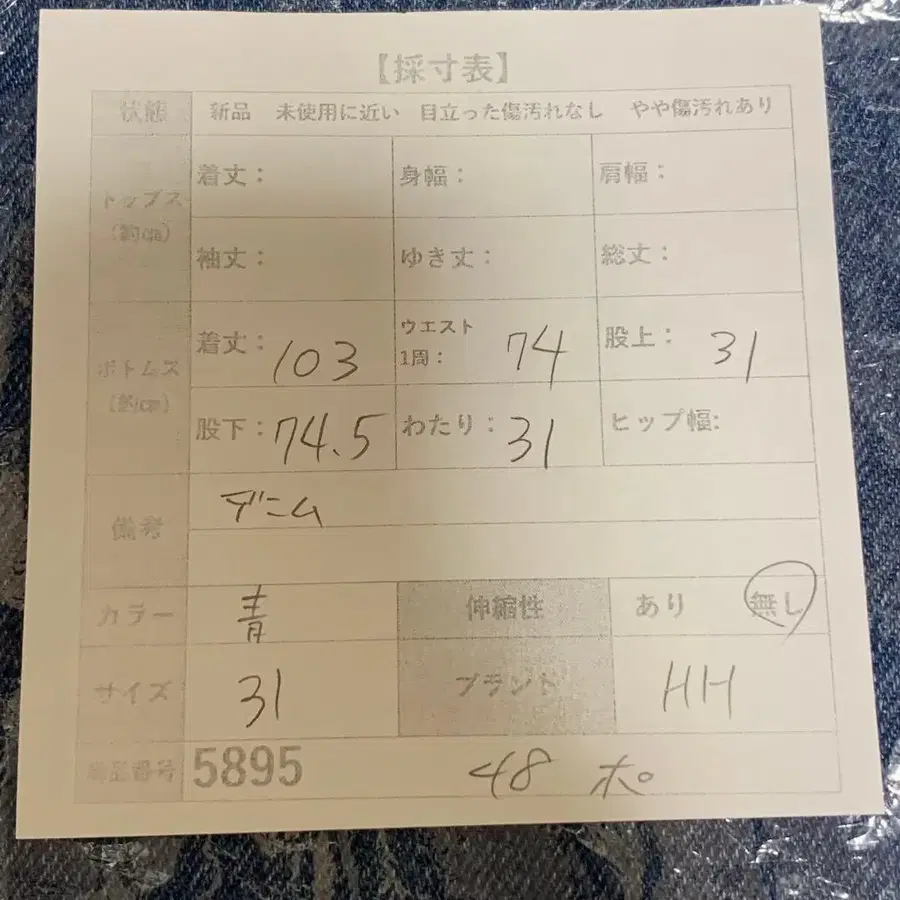 【採寸表】
状態 新品 未使用に近い 目立った傷汚れなし やや傷汚れあり
トップス
(約cm)
着丈： 身幅： 肩幅：
袖丈： ゆき丈： 総丈：
ボトムス
(約cm)
着丈： 103 ウエスト1周： 74 股上： 31
股下： 74.5 わたり： 31 ヒップ幅:
備考 デニム
カラー 青 伸縮性 あり 無し
サイズ 31 ブランド HH
商品番号 5895 48 ポ